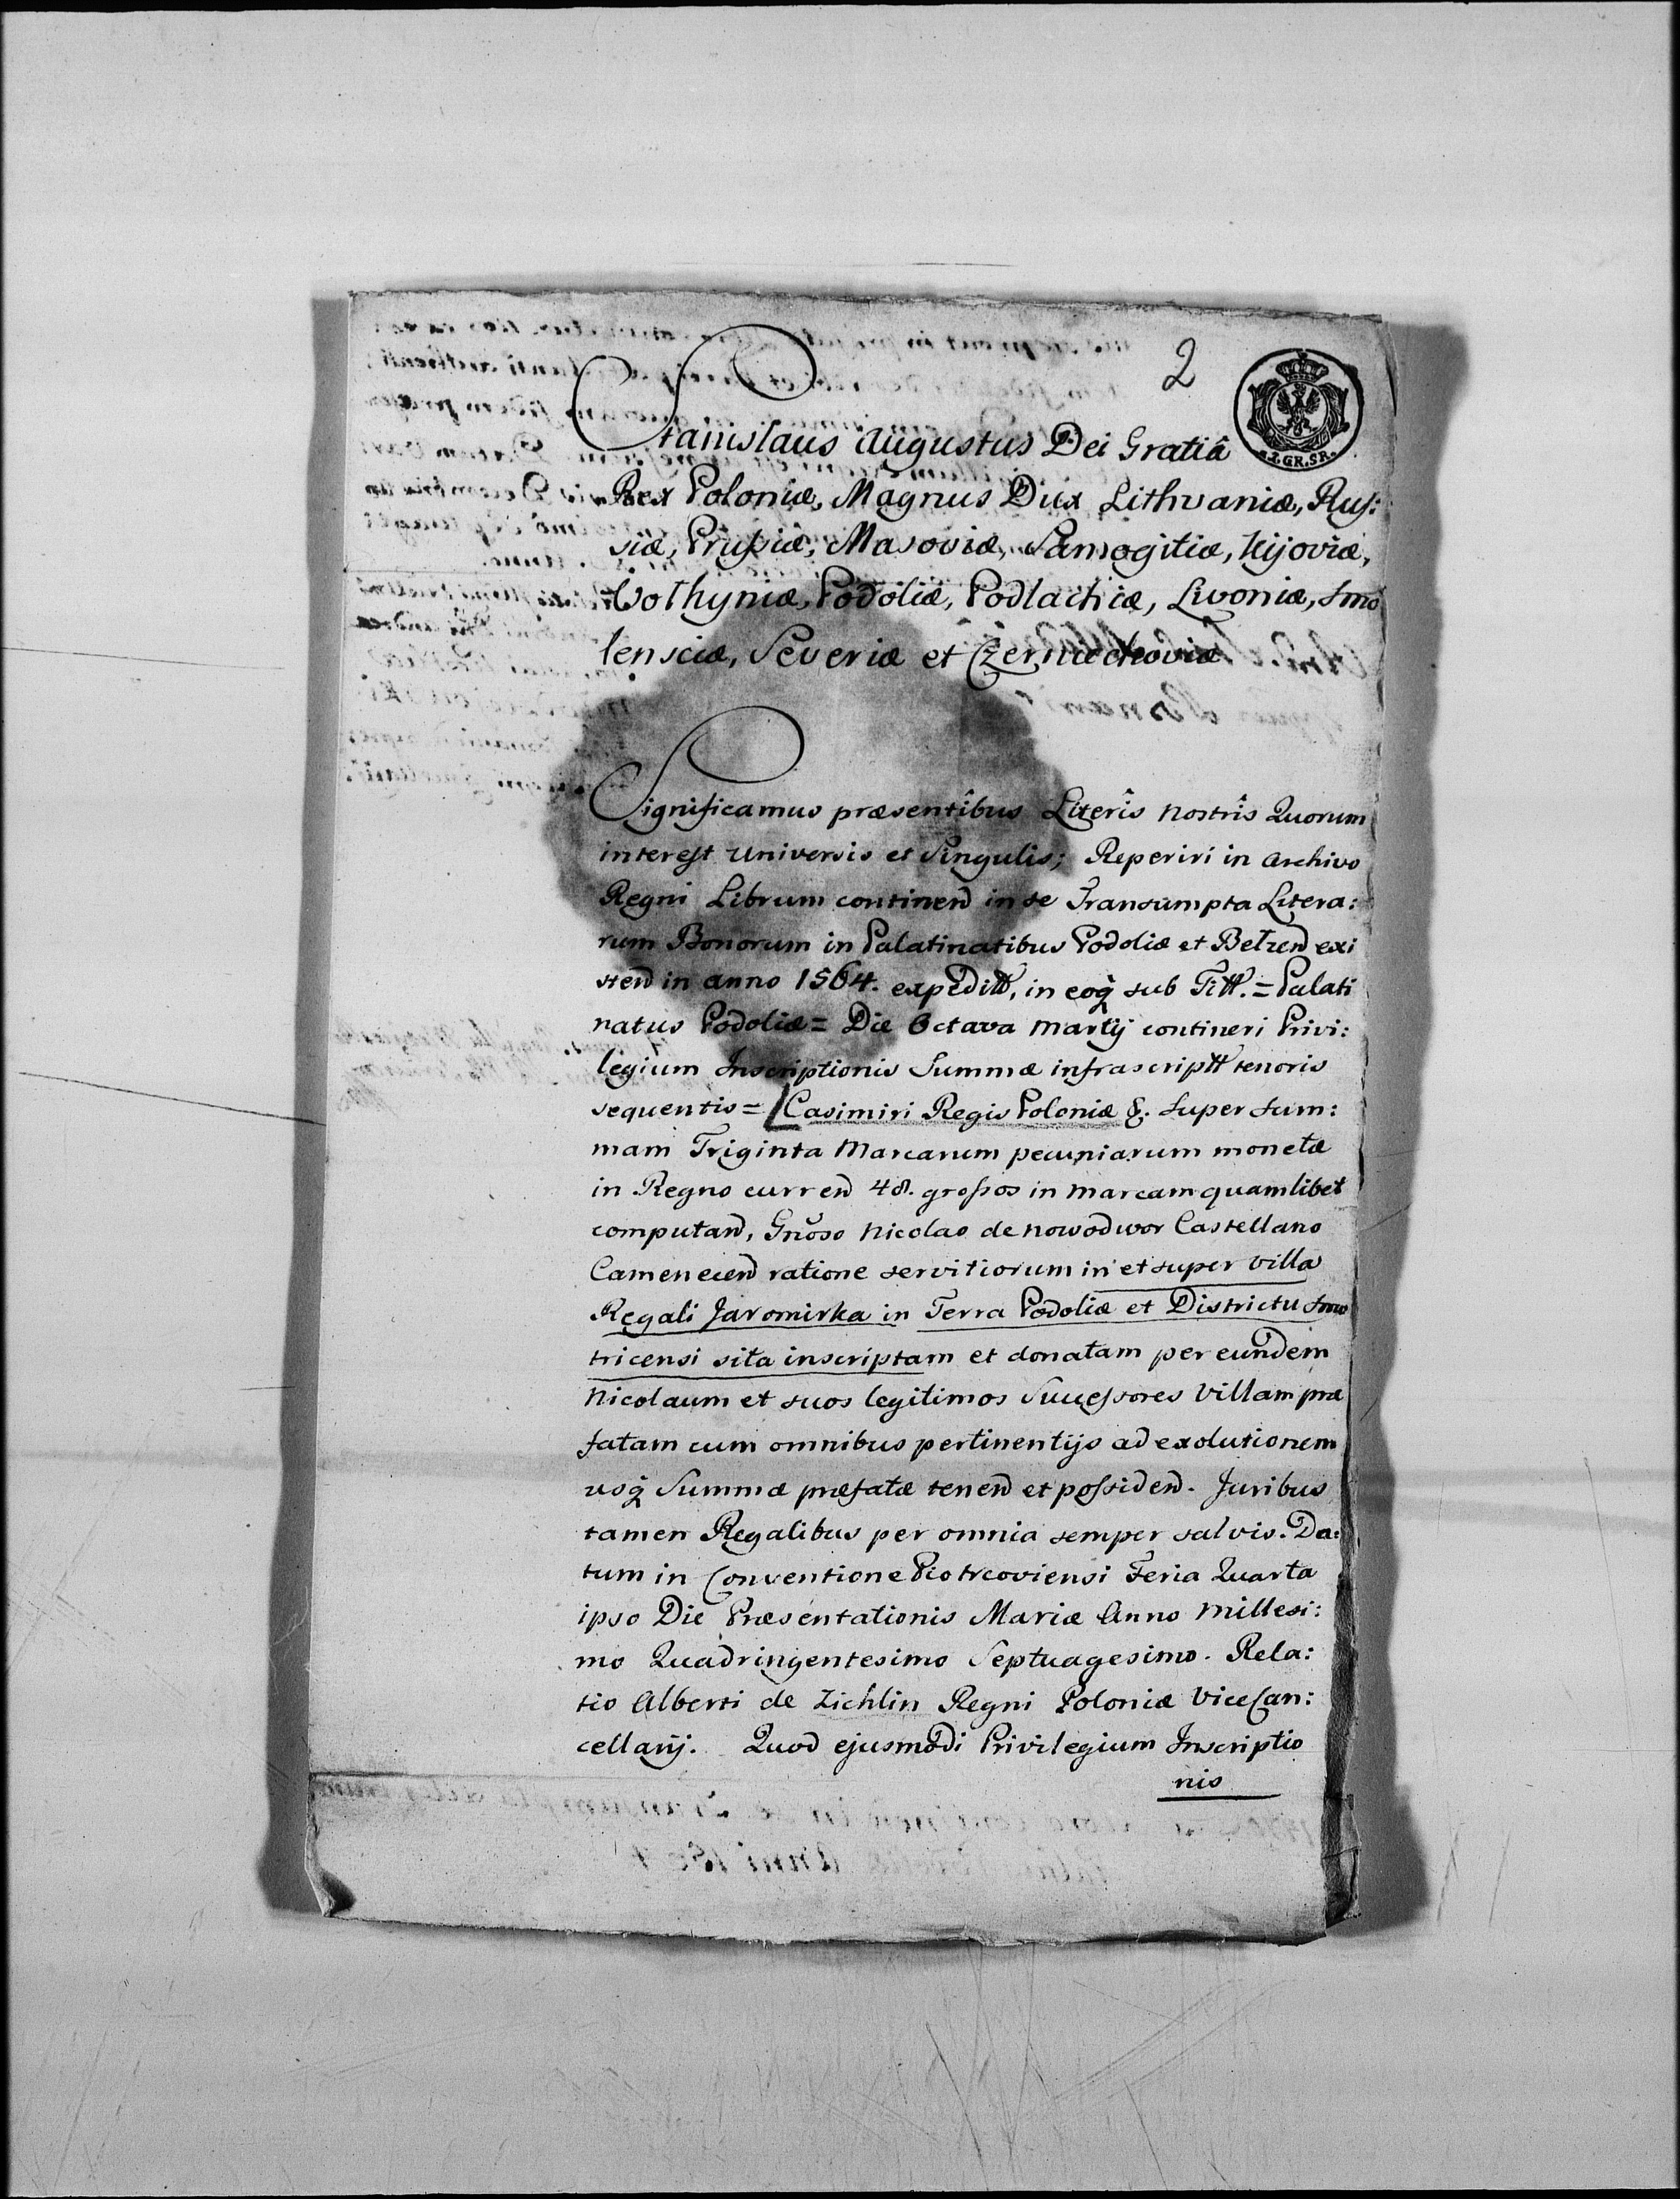 2
Z.GR.SR.
Stanislaus Augustus Dei Gratiâ
Rex Poloniæ, Magnus Dux Lithvaniæ, Rus:
siæ, Prussiæ, Masoviæ, Samogitiæ, Kijoviæ,
Wolhyniæ, Podoliæ, Podlachiæ, Livoniæ, Smo
lensciæ, Severiæ et Czerniechoviæ
Significamus præsentîbus Literîs nostrîs Quorum
interest Universis et Singulis; Reperiri in Archivo
Regni Librum continen̄ in se Transumpta Litera:
rum Bonorum in Palatinatibus Podoliæ et Belzen̄ exi
sten̄ in anno 1564. expeditt, in eoq̃ sub Titt. = Palati
natus Podoliæ = Die Octava Martij contineri Privi:
legium Inscriptionis Summæ infrascriptt tenoris
sequentis = [Casimiri Regis Poloniæ &. super sum:
mam Triginta Marcarum pecuniarum monetæ
in Regno curren̄ 48. grossos in marcam quamlibet
computan̄, Gnõso Nicolao de Nowodwor Castellano
Camenecen̄ ratione servitiorum in et super villa
Regali Jaromirka in Terra Podoliæ et Districtu Smo
tricensi sita inscriptam et donatam per eundem
Nicolaum et suos legitimos Successores Villam præ
fatam cum omnibus pertinentijs ad exolutionem
usq̃ Summæ præfatæ tenen̄ et possiden̄. Juribus
tamen Regalibus per omnia semper salvis. Da:
tum in Conventione Piotrcoviensi Feria Quarta
ipso Die Præsentationis Mariæ Anno Millesi:
mo Quadringentesimo Septuagesimo. Rela:
tio Alberti de Zichlin Regni Poloniæ ViceCan:
cellarij. Quod ejusmodi Privilegium Inscriptio
nis